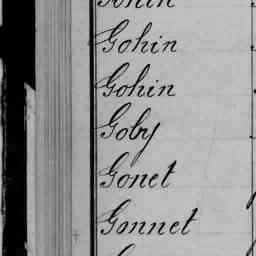 Gohin
Gohin
Goby
Gonet
Gonnet